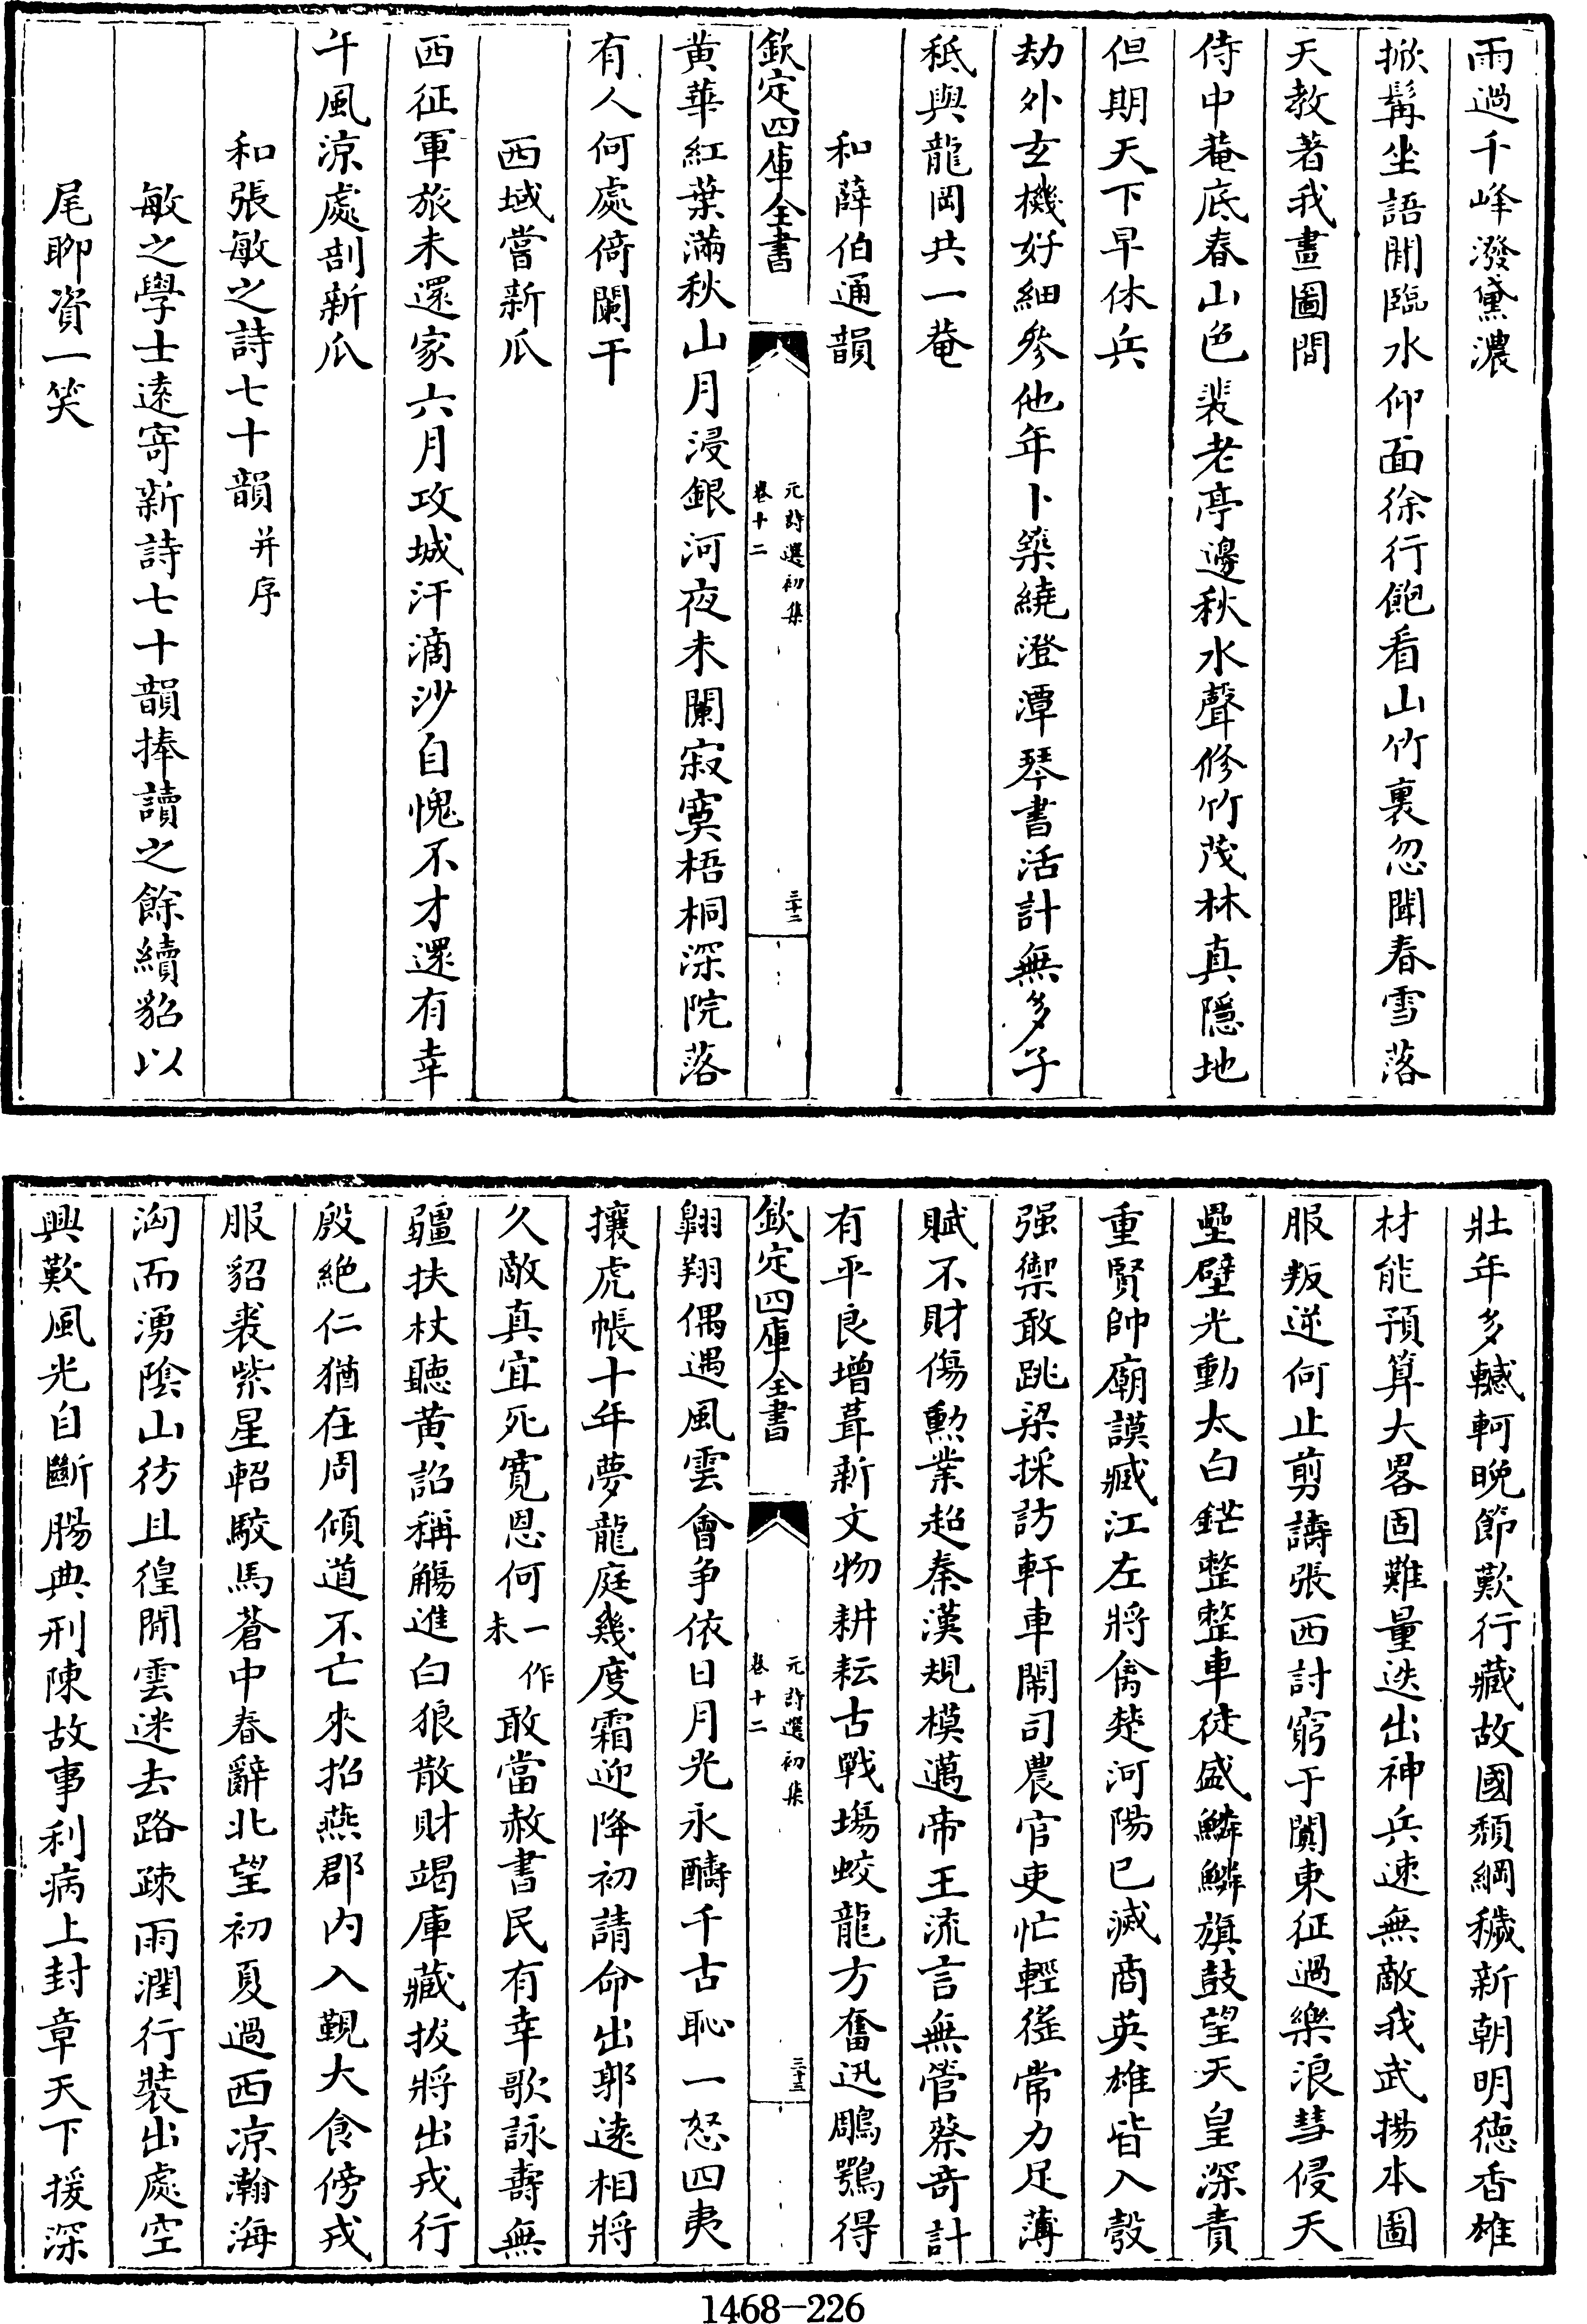 雨過千峰潑黛濃
掀髯坐語閒臨水仰面徐行飽看山竹裏忽聞春雪落
天教著我畫圖間
侍中菴底春山色裴老亭邊秋水聲修竹茂林真隱地
但期天下早休兵
劫外玄機好細參他年卜築繞澄潭琴書活計無多子
秪與龍岡共一菴
和薛伯通韻
欽定四庫全書
元詩選初集
卷十二
三十二
黄華紅葉滿秋山月浸銀河夜未闌寂寞梧桐深院落
有人何處倚闌干
西域嘗新瓜
西征軍旅未還家六月攻城汗滴沙自愧不才還有幸
午風涼處剖新瓜
和張敏之詩七十韻并序
敏之學士逺寄新詩七十韻捧讀之餘續貂以
尾聊資一笑
壯年多轗軻晚節歎行藏故國頽綱穢新朝明德香雄
材能預算大畧固難量迭出神兵速無敵我武揚本圖
服叛逆何止剪譸張西討窮于闐東征過樂浪彗侵天
壘壁光動太白鋩整整車徒盛鱗鱗旗鼓望天皇深責
重賢帥廟謨臧江左將禽楚河陽已滅商英雄皆入彀
强禦敢跳梁採訪軒車鬧司農官吏忙輕徭常力足薄
賦不財傷勲業超秦漢規模邁帝王流言無管蔡奇計
有平良增葺新文物耕耘古戰場蛟龍方奮迅鵰鶚得
欽定四庫全書
元詩選初集
卷十二
三十三
翺翔偶遇風雲會争依日月光永醻千古恥一怒四夷
攘虎帳十年夢龍庭幾度霜迎降初請命出郭逺相將
久敵真宜死寛恩何一作未敢當赦書民有幸歌詠壽無
疆扶杖聽黄詔稱觴進白狼散財竭庫藏拔將出戎行
殷絶仁猶在周傾道不亡來招燕郡内入覲大食傍戎
服貂裘紫星軺駮馬蒼中春辭北望初夏過西涼瀚海
洶而湧陰山彷且徨閒雲迷去路疎雨潤行裝出處空
興歎風光自斷腸典刑陳故事利病上封章天下援深
1468-226